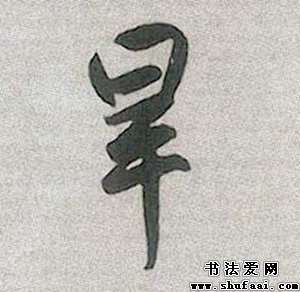 旱
书法爱网
www.shufaai.com